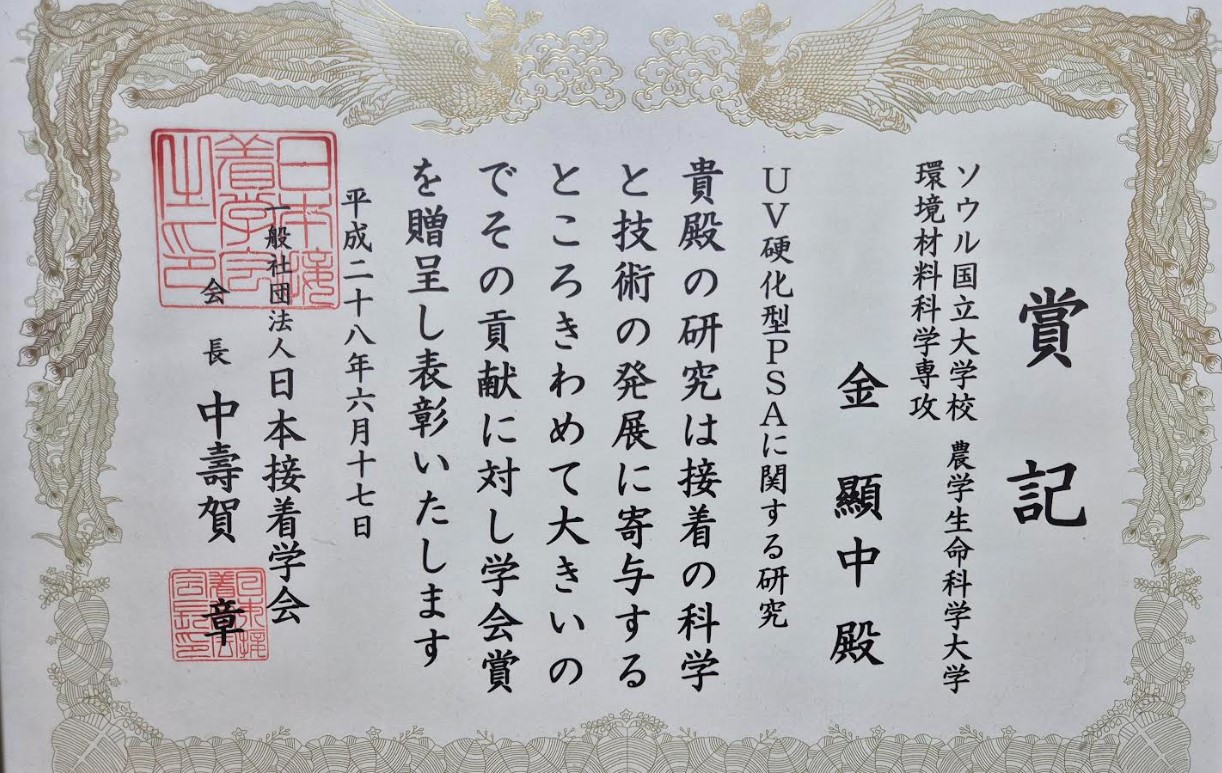 賞記
ソウル国立大学校 農学生命科学大学
環境材料科学専攻
金顯中殿
UV硬化型PSAに関する研究
貴殿の研究は接着の科学
と技術の発展に寄与する
ところきわめて大きいの
でその貢献に対し学会賞
を贈呈し表彰いたします
平成二十八年六月十七日
一般社団法人日本接着学会
会長 中壽賀 章
日本接
着学会
之印
日本接
着学会
会長印